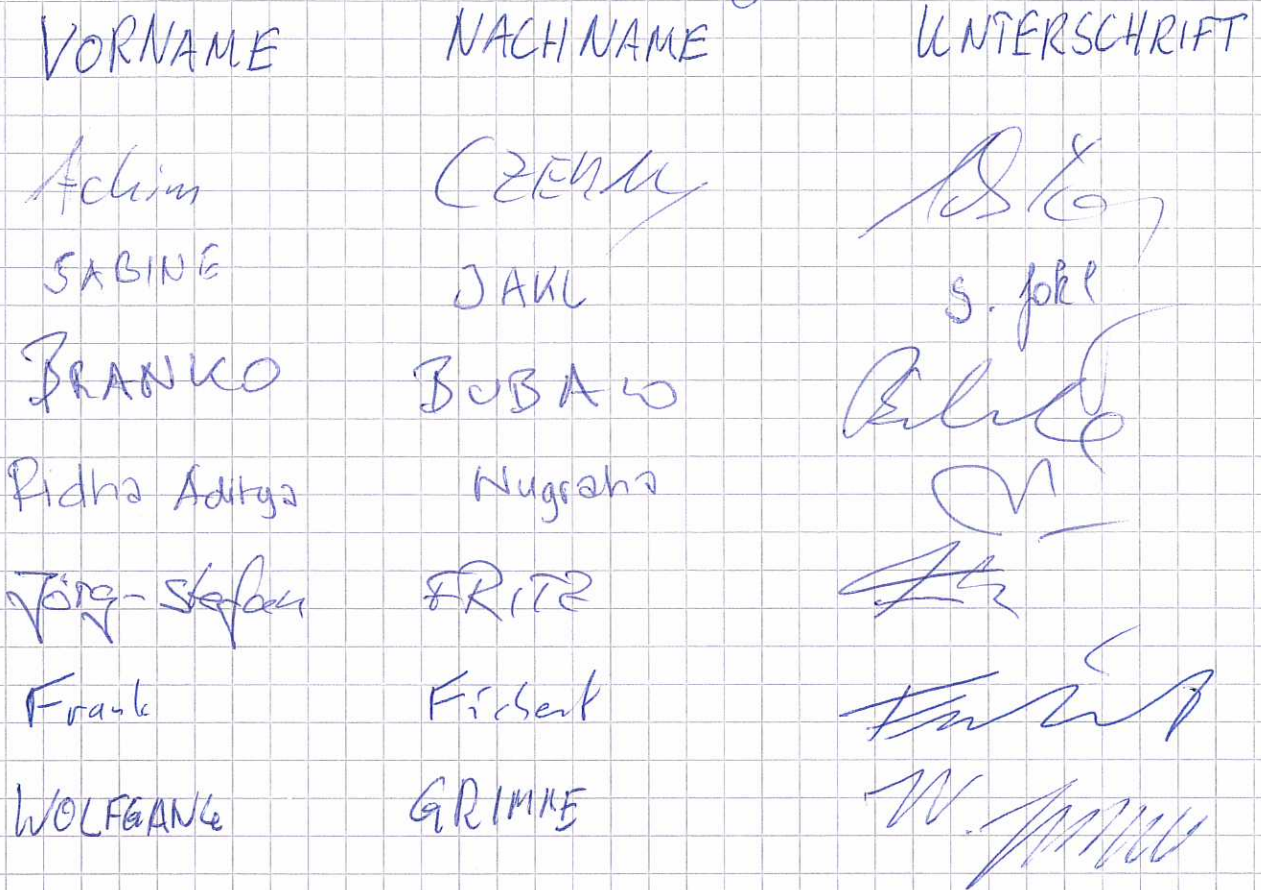 VORNAME NACHNAME UNTERSCHRIFT
Achim CZERNY
SABINE JAKL S. Jakl
BRANKO BUBALO
Ridha Aditya Nugraha
Jörg-Stefan FRITZ
Frank Fichert
WOLFGANG GRIMME W.